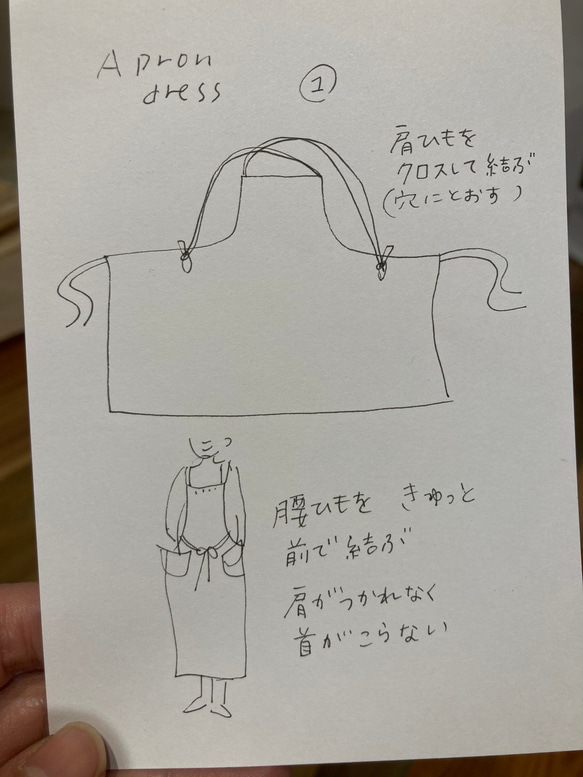 Apron
dress
①
肩ひもを
クロスして結ぶ
(穴にとおす)
腰ひもを きゅっと
前で結ぶ
肩がつかれなく
首がこらない